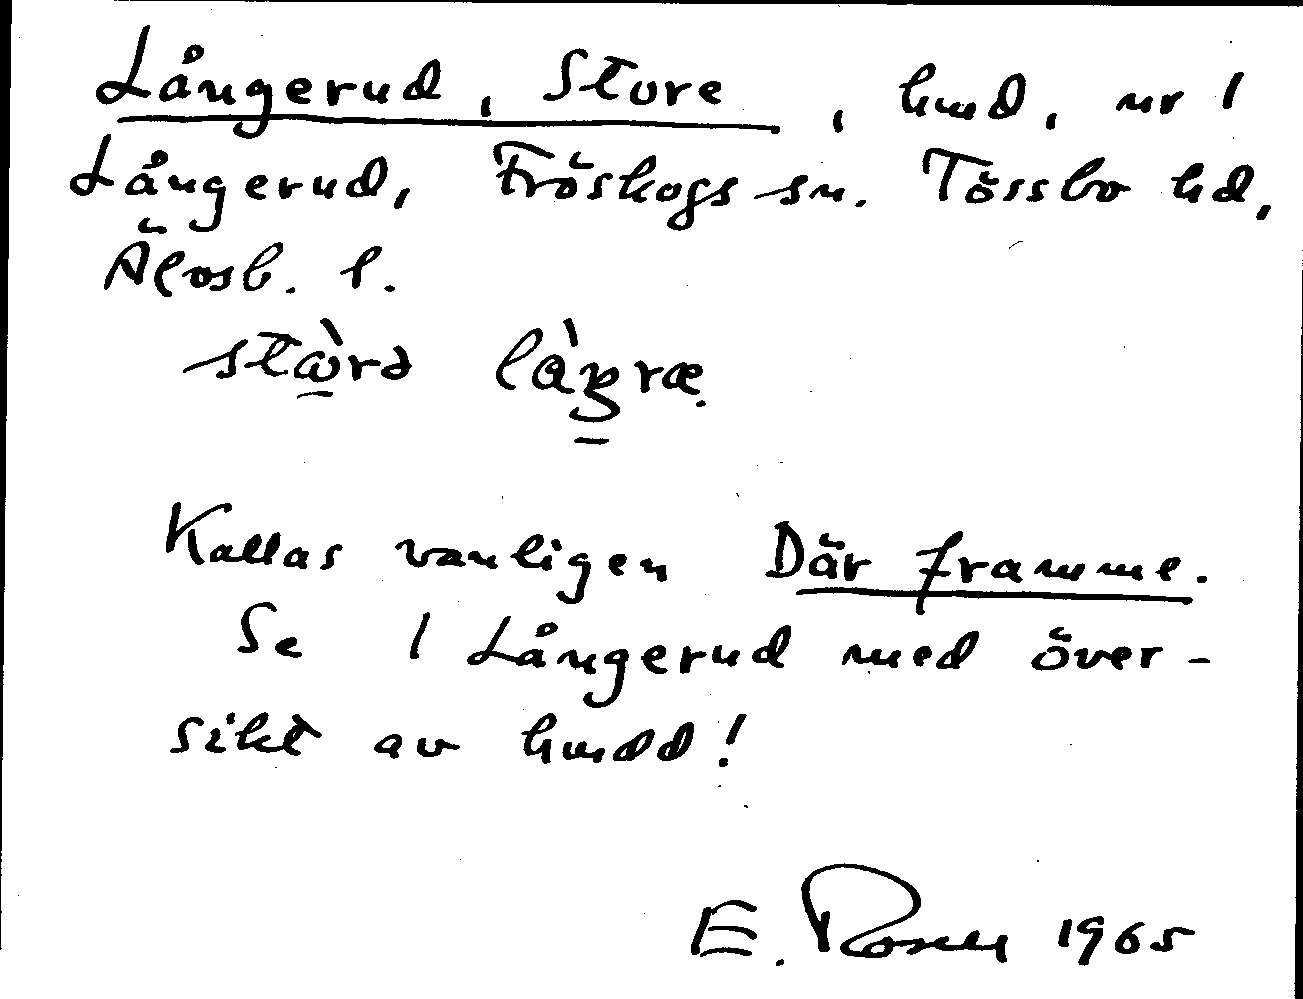 Långerud, Store, hmd, nr 1
Långerud, Fröskogs sn. Tössbo hd,
Älvsb. l.
Kallas vanligen Där framme.
Se 1 Långerud med över-
sikt av hmdd!
E. Rosen 1965